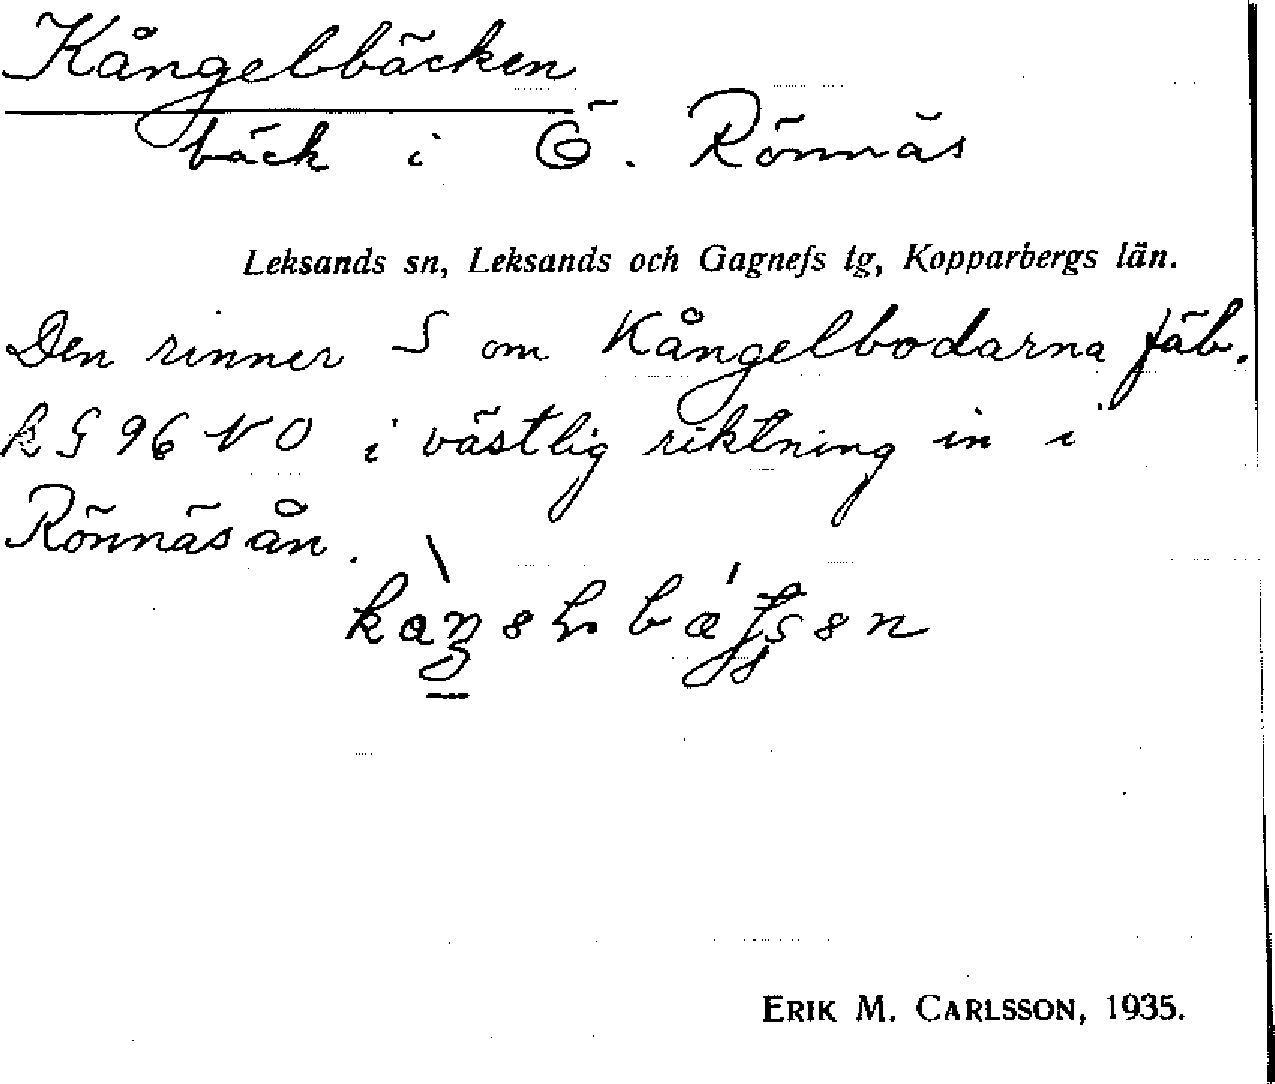 Kångelbbäcken
bäck i Ö. Rönnäs
Leksands sn, Leksands och Gagnefs tg, Kopparbergs län.
Den rinner S om Kångelbodarna fäb.
k G 96 NO i västlig riktning in i
Rönnäsån.
ERIK M. CARLSSON, 1935.